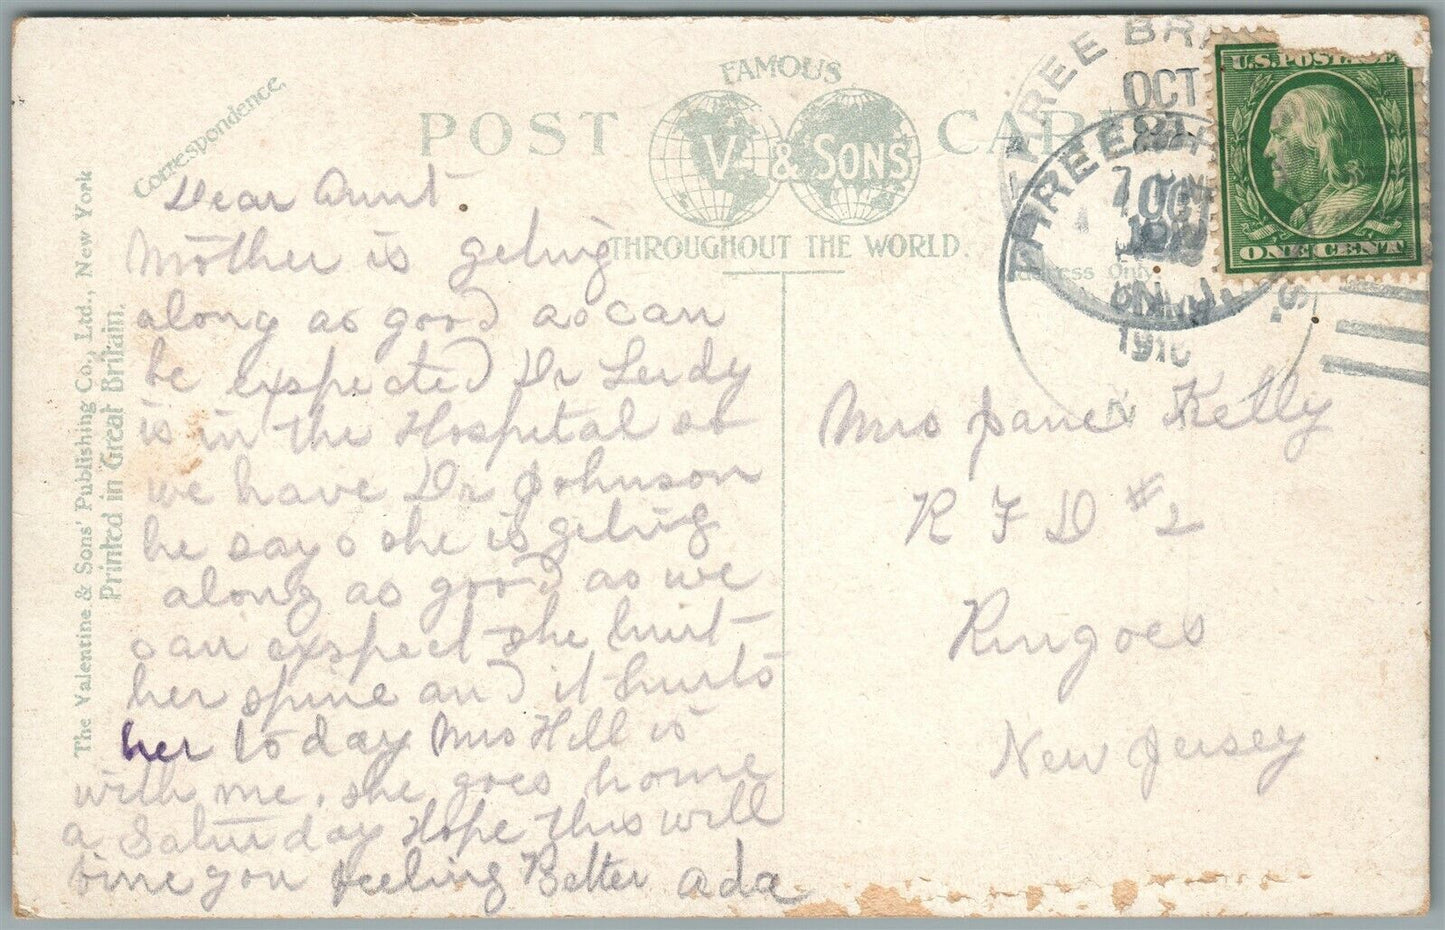 Correspondence.
FAMOUS
POST CARD
V. & SONS
THROUGHOUT THE WORLD.
Address Only.
The Valentine & Sons' Publishing Co., Ltd., New York
Printed in Great Britain.
Dear Aunt
Mother is geting
along as good as can
be expected Dr Leidy
is in the Hospital so
we have Dr Johnson
he says she is geting
along as good as we
can expect she hurt
her spine and it hurts
her to day Mrs Hill is
with me, she goes home
a Saturday Hope this will
fine you feeling Better Ada
U.S. POSTAGE
ONE CENT
THREE BR
OCT
7
THREE
OCT
1910
N
Mrs Jane Kelly
R F D #2
Ringoes
New Jersey